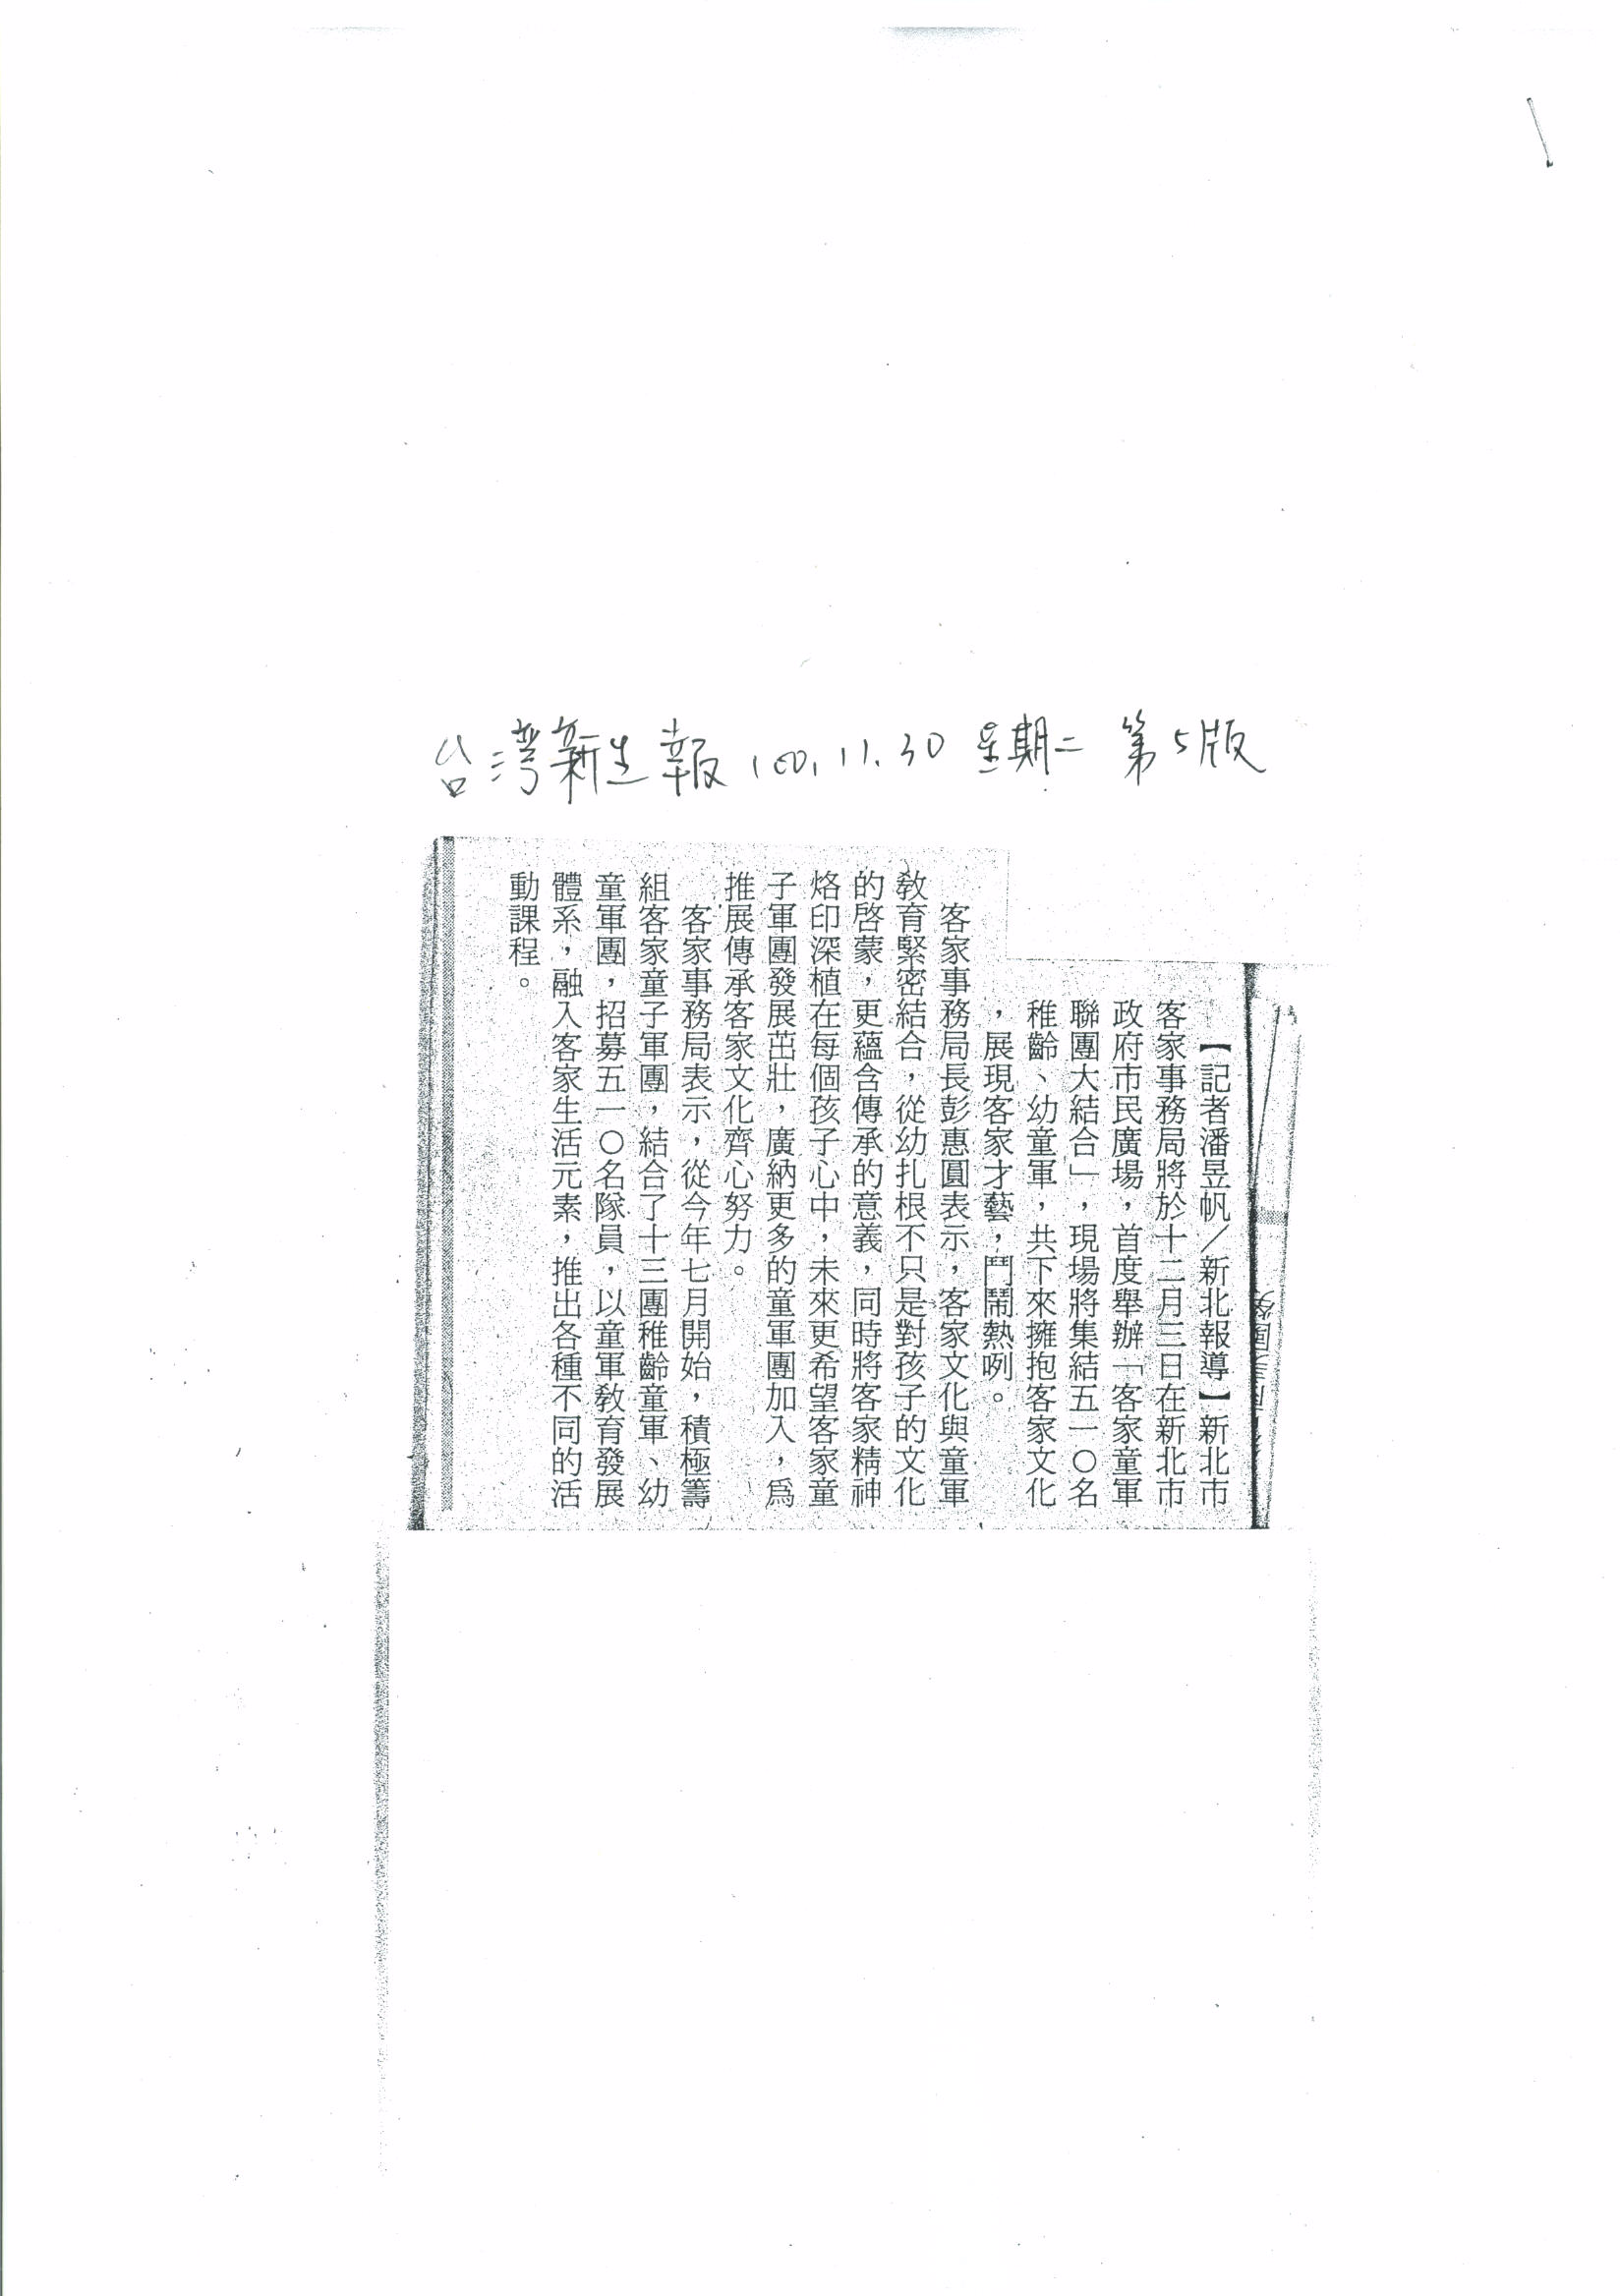 台灣新生報 100.11.30 星期二 第5版
【記者潘昱帆/新北報導】新北市
客家事務局將於十二月三日在新北市
政府市民廣場，首度舉辦「客家童軍
聯團大結合」，現場將集結五一〇名
稚齡、幼童軍，共下來擁抱客家文化
，展現客家才藝，鬥鬧熱咧。
客家事務局長彭惠圓表示，客家文化與童軍
教育緊密結合，從幼扎根不只是對孩子的文化
的啓蒙，更蘊含傳承的意義，同時將客家精神
烙印深植在每個孩子心中，未來更希望客家童
子軍團發展茁壯，廣納更多的童軍團加入，爲
推展傳承客家文化齊心努力。
客家事務局表示，從今年七月開始，積極籌
組客家童子軍團，結合了十三團稚齡童軍、幼
童軍團，招募五一〇名隊員，以童軍教育發展
體系，融入客家生活元素，推出各種不同的活
動課程。